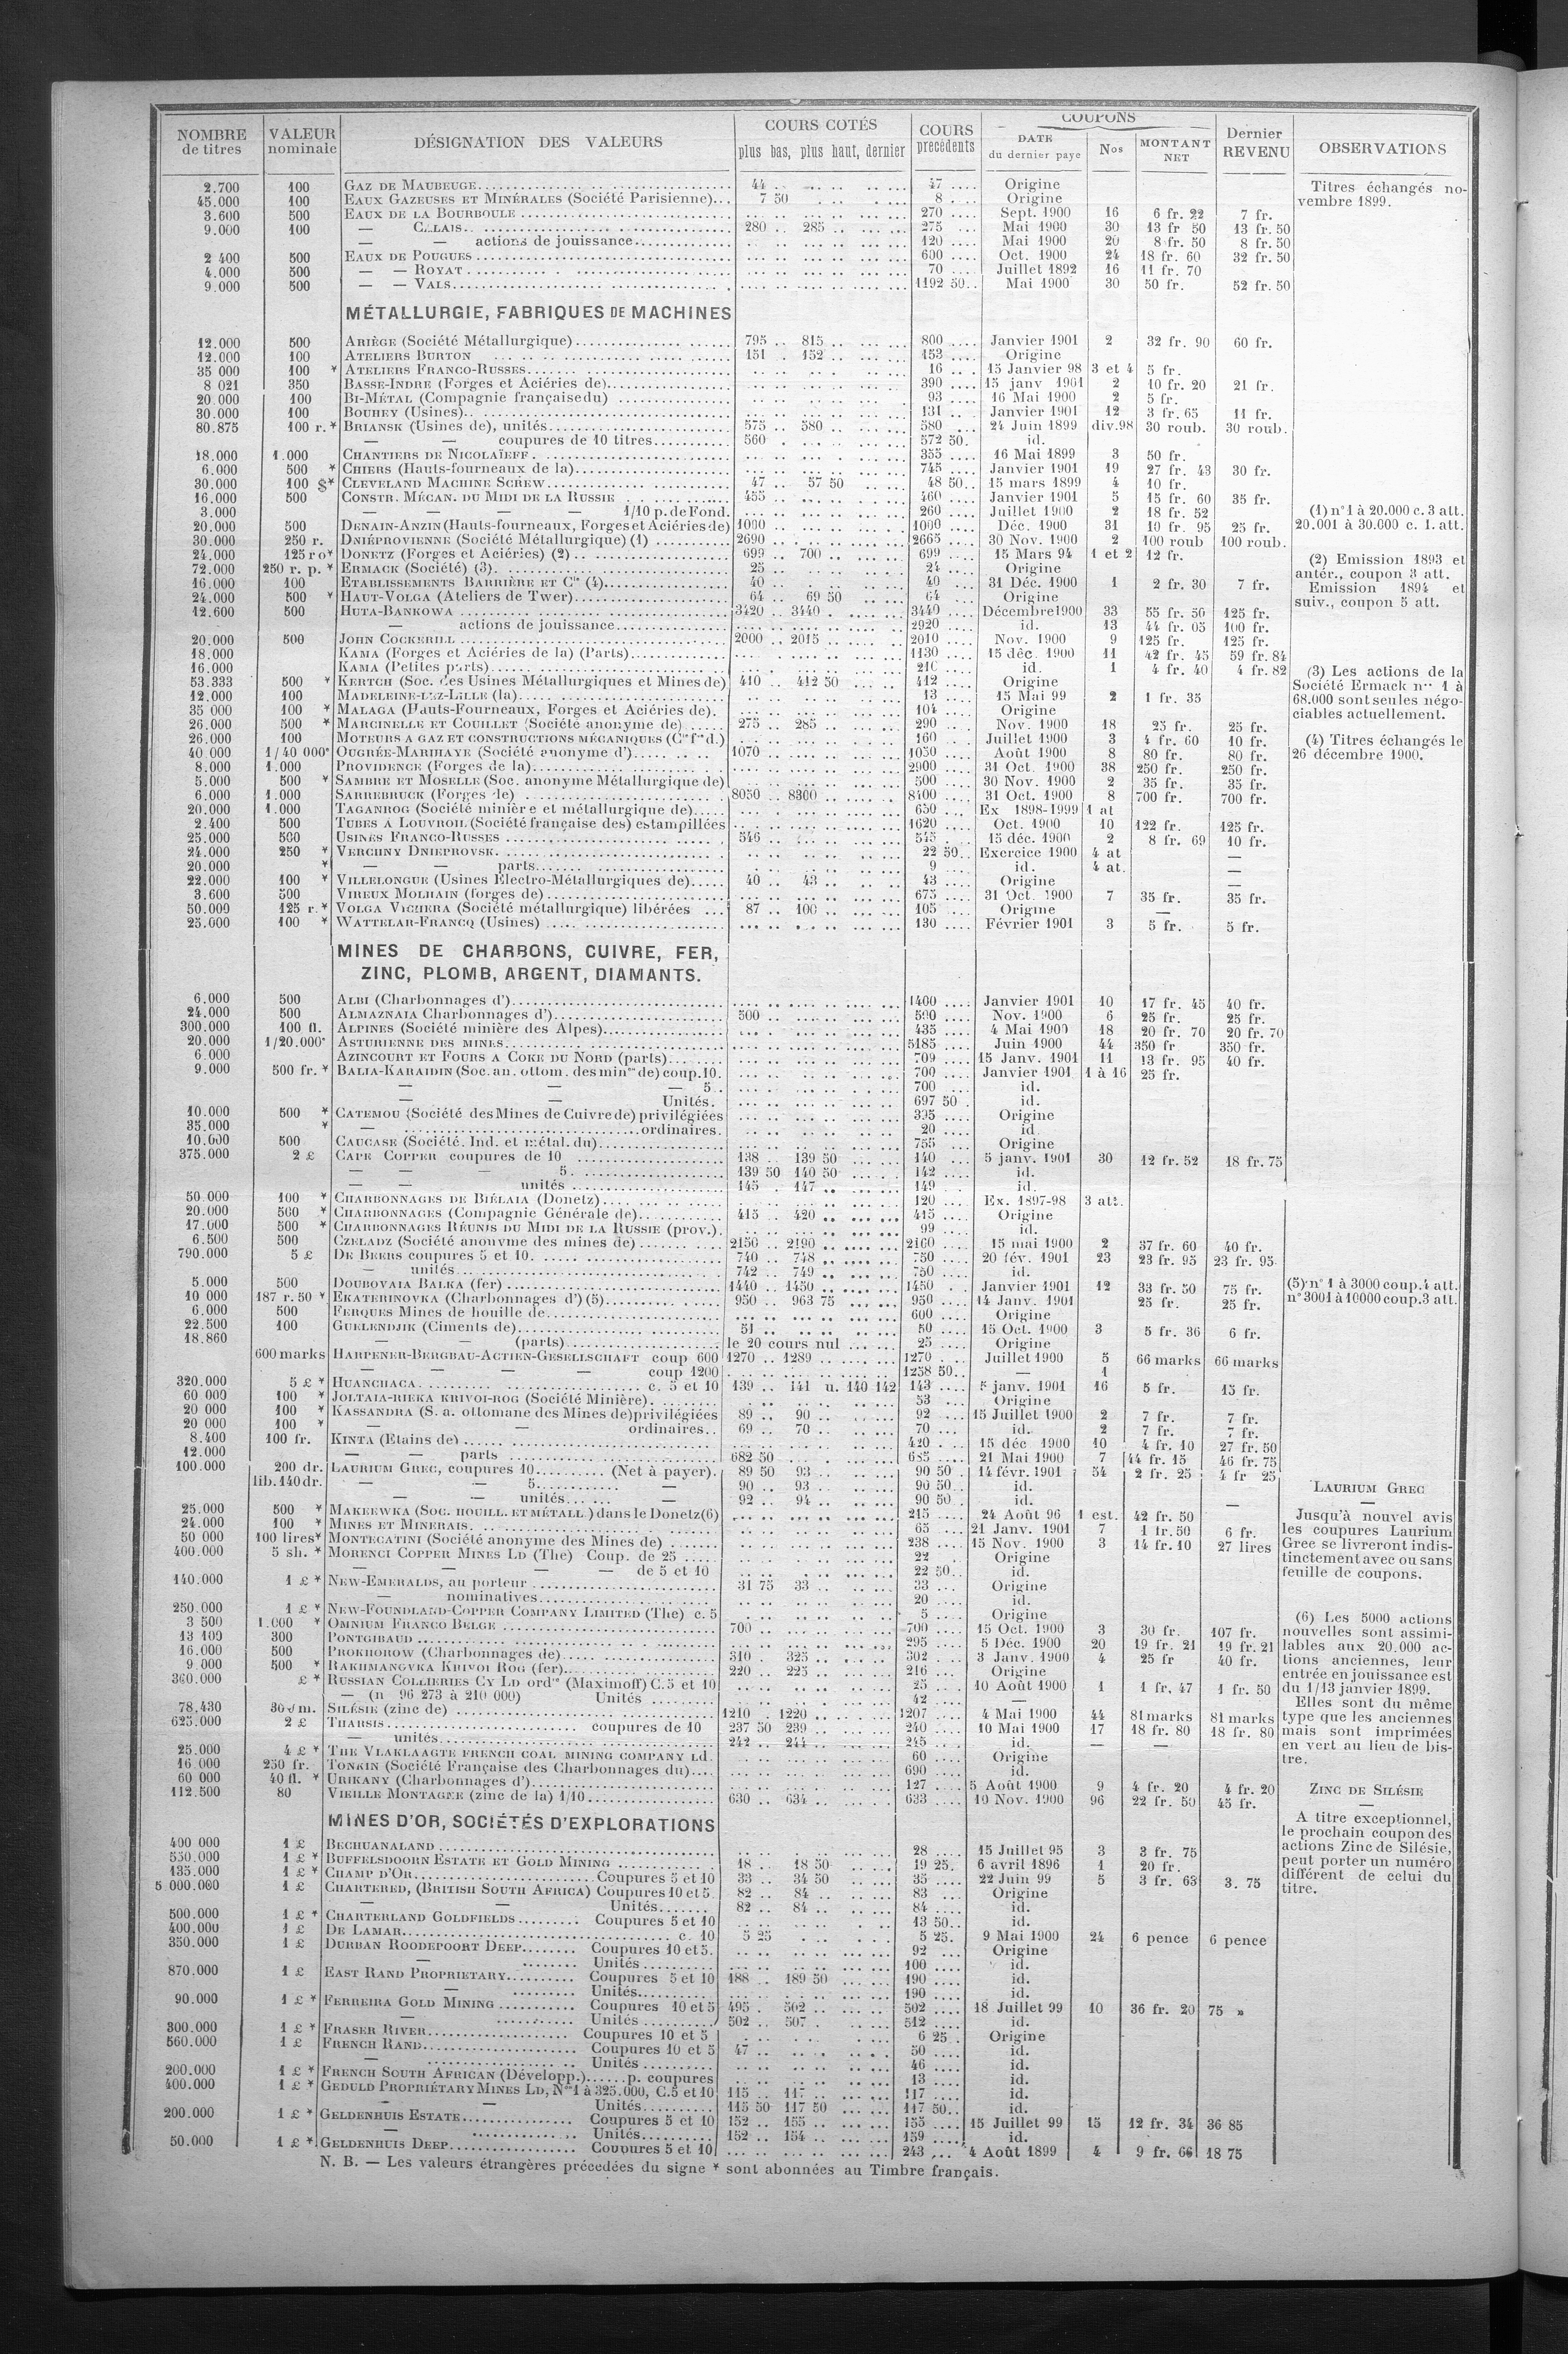 NOMBRE de titres | VALEUR nominale | DÉSIGNATION DES VALEURS | COURS COTÉS plus bas, plus haut, dernier | COURS précédents | COUPONS DATE du dernier paye | Nos | MONTANT NET | Dernier REVENU | OBSERVATIONS
2.700 100 GAZ DE MAUBEUGE 44 .. 47 .... Origine
45.000 100 EAUX GAZEUSES ET MINÉRALES (Société Parisienne)... 7 50 8 .... Origine
3.600 500 EAUX DE LA BOURBOULE 270 .... Sept. 1900 16 6 fr. 22 7 fr.
9.000 100 — 280 .. 285 .. 275 .... Mai 1900 30 13 fr 50 13 fr. 50
— — actions de jouissance 120 .... Mai 1900 20 8 fr. 50 8 fr. 50
2 400 500 EAUX DE POUGUES 600 .... Oct. 1900 24 18 fr. 60 32 fr. 50
4.000 500 — — ROYAT 70 .... Juillet 1892 16 11 fr. 70
9.000 500 — — VALS 1192 50.. Mai 1900 30 50 fr. 52 fr. 50
MÉTALLURGIE, FABRIQUES DE MACHINES
12.000 500 ARIÈGE (Société Métallurgique) 795 .. 815 .. 800 .... Janvier 1901 2 32 fr. 90 60 fr.
12.000 100 ATELIERS BURTON 151 . 152 .. 153 .... Origine
35 000 100 * ATELIERS FRANCO-RUSSES 16 .. . 15 Janvier 98 3 et 4 5 fr.
8 021 350 BASSE-INDRE (Forges et Aciéries de) 390 .... 15 janv 1901 2 10 fr. 20 21 fr.
20.000 100 BI-MÉTAL (Compagnie française du) 93 .... 16 Mai 1900 2 5 fr.
30.000 100 BOUHEY (Usines) 131 .. Janvier 1901 12 3 fr. 65 11 fr.
80.875 100 r. * BRIANSK (Usines de), unités 575 .. 580 .. 580 .... 24 Juin 1899 div.98 30 roub. 30 roub.
— — coupures de 10 titres 560 . 572 50. id.
18.000 1.000 CHANTIERS DE NICOLAÏEFF 355 .... 16 Mai 1899 3 50 fr.
6.000 500 * CHIERS (Hauts-fourneaux de la) 745 .... Janvier 1901 19 27 fr. 43 30 fr.
30.000 100 $* CLEVELAND MACHINE SCREW 47 .. 57 50 48 50.. 15 mars 1899 4 10 fr.
16.000 500 CONSTR. MÉCAN. DU MIDI DE LA RUSSIE 455 .. 460 .... Janvier 1901 5 15 fr. 60 35 fr.
3.000 — — — — 1/10 p. de Fond. 260 .... Juillet 1900 2 18 fr. 52
20.000 500 DENAIN-ANZIN (Hauts-fourneaux, Forges et Aciéries de) 1000 .. 1000 .... Déc. 1900 31 10 fr. 95 25 fr.
30.000 250 r. DNIÉPROVIENNE (Société Métallurgique) (1) 2690 .. 2665 .... 30 Nov. 1900 2 100 roub 100 roub.
24.000 125 ro* DONETZ (Forges et Aciéries) (2) 699 .. 700 .. 699 .... 15 Mars 94 1 et 2 12 fr.
72.000 250 r. p. * ERMACK (Société) (3) 25 .. 24 .... Origine
16.000 100 ETABLISSEMENTS BARRIÈRE ET Cie (4) 40 .. 40 ... 31 Déc. 1900 1 2 fr. 30 7 fr.
24.000 500 * HAUT-VOLGA (Ateliers de Twer) 64 .. 69 50 64 ... Origine
12.600 500 HUTA-BANKOWA 3420 .. 3440 . 3440 .... Décembre 1900 33 55 fr. 50 125 fr.
— actions de jouissance 2920 .... id. 13 44 fr. 05 100 fr.
20.000 500 JOHN COCKERILL 2000 .. 2015 .. 2010 .... Nov. 1900 9 125 fr. 125 fr.
18.000 KAMA (Forges et Aciéries de la) (Parts) 1130 .... 15 déc. 1900 11 42 fr. 45 59 fr. 84
16.000 KAMA (Petites parts) .... id. 1 4 fr. 40 4 fr. 82
53.333 500 * KERTCH (Soc. des Usines Métallurgiques et Mines de) 410 .. 412 50 412 .... Origine
12.000 100 MADELEINE-LEZ-LILLE (la) 13 .... 15 Mai 99 2 1 fr. 35
35 000 100 * MALAGA (Hauts-Fourneaux, Forges et Aciéries de). 104 .... Origine
26.000 500 * MARCINELLE ET COUILLET (Société anonyme de) 275 .. 285 .. 290 .. Nov. 1900 18 25 fr. 25 fr.
26.000 100 MOTEURS A GAZ ET CONSTRUCTIONS MÉCANIQUES (Cie fse d.) 160 .... Juillet 1900 3 4 fr. 60 10 fr.
40 000 1/40 000e OUGRÉE-MARIHAYE (Société anonyme d') 1070 .. 1050 .... Août 1900 8 80 fr. 80 fr.
8.000 1.000 PROVIDENCE (Forges de la) 2900 .... 31 Oct. 1900 38 250 fr. 250 fr.
5.000 500 * SAMBRE ET MOSELLE (Soc. anonyme Métallurgique de) 500 .... 30 Nov. 1900 2 35 fr. 35 fr.
6.000 1.000 SARREBRUCK (Forges de) 8050 .. 8300 .. 8400 .... 31 Oct. 1900 8 700 fr. 700 fr.
20.000 1.000 TAGANROG (Société minière et métallurgique de) 650 ... Ex 1898-1999 1 at
2.400 500 TUBES A LOUVROIL (Société française des) estampillées 1620 .... Oct. 1900 10 122 fr. 125 fr.
25.000 500 USINES FRANCO-RUSSES 546 .. 545 .. 15 déc. 1900 2 8 fr. 69 10 fr.
24.000 250 * VERCHNY DNIEPROVSK. 22 50.. Exercice 1900 4 at —
20.000 * — — parts 9 ... id. 4 at. —
22.000 100 * VILLELONGUE (Usines Électro-Métallurgiques de) 40 .. 43 .. 43 .... Origine —
3.600 500 VIREUX MOLHAIN (forges de) 675 .... 31 Oct. 1900 7 35 fr. 35 fr.
50.000 125 r. * VOLGA VICHERA (Société métallurgique) libérées ... 87 .. 100 .. 105 ... Origine —
25.000 100 * WATTELAR-FRANCQ (Usines) 130 .... Février 1901 3 5 fr. 5 fr.
MINES DE CHARBONS, CUIVRE, FER,
ZINC, PLOMB, ARGENT, DIAMANTS.
6.000 500 ALBI (Charbonnages d') 1400 .... Janvier 1901 10 17 fr. 45 40 fr.
24.000 500 ALMAZNAIA Charbonnages d') 500 .. 500 .... Nov. 1900 6 25 fr. 25 fr.
300.000 100 fl. ALPINES (Société minière des Alpes) 435 .... 4 Mai 1900 18 20 fr. 70 20 fr. 70
20.000 1/20.000e ASTURIENNE DES MINES 5185 .... Juin 1900 44 350 fr 350 fr.
6.000 AZINCOURT ET FOURS A COKE DU NORD (parts) 709 .... 15 Janv. 1901 11 13 fr. 95 40 fr.
9.000 500 fr. * BALIA-KARAIDIN (Soc. an. ottom. des mines de) coup. 10. 700 .... Janvier 1901 1 à 16 25 fr.
— — — 5.. 700 .... id.
— — Unités. 697 50 . id.
10.000 500 * CATEMOU (Société des Mines de Cuivre de) privilégiées 395 .... Origine
35.000 * — ordinaires. 20 .... id
10.000 500 CAUCASE (Société. Ind. et métal. du) 755 .... Origine
375.000 2 £ CAPE COPPER coupures de 10 138 .. 139 50 140 ... 5 janv. 1901 30 12 fr. 52 18 fr. 75
— — — 5. 139 50 140 50 142 ... id.
— — unités 145 . 147 .. 149 ... id.
50.000 100 * CHARBONNAGES DE BIÉLAIA (Donetz) 120 ... Ex. 1897-98 3 att.
20.000 500 * CHARBONNAGES (Compagnie Générale de) 415 .. 420 .. 415 .... Origine
17.000 500 * CHARBONNAGES RÉUNIS DU MIDI DE LA RUSSIE (prov.). 99 ... id.
6.500 500 CZELADZ (Société anonyme des mines de) 2150 .. 2190 .. 2160 .... 15 mai 1900 2 37 fr. 60 40 fr.
790.000 5 £ DE BEERS coupures 5 et 10. 740 .. 748 .. 750 .... 20 fév. 1901 23 23 fr. 95 23 fr. 95
— unités 742 .. 749 .. 750 .... id.
5.000 500 DOUBOVAIA BALKA (fer) 1440 .. 1450 .. 1450 .. Janvier 1901 12 33 fr. 50 75 fr.
10 000 187 r. 50 * EKATERINOVKA (Charbonnages d') (5) 950 .. 963 75 950 .... 14 Janv. 1901 25 fr. 25 fr.
6.000 500 FERQUES Mines de houille de 600 .... Origine
22.500 100 GUELENDJIK (Ciments de) 51 .. 50 .... 15 Oct. 1900 3 5 fr. 36 6 fr.
18.860 — — (parts) le 20 cours nul 25 .... Origine
600 marks HARPENER-BERGBAU-ACTIEN-GESELLSCHAFT coup 600 1270 .. 1289 .. 1270 .... Juillet 1900 5 66 marks 66 marks
— — — — coup 1200 1258 50.. — 1
320.000 5 £ * HUANCHACA c. 5 et 10 139 .. 141 u. 140 142 143 .... 5 janv. 1901 16 5 fr. 15 fr.
60 000 100 * JOLTAIA-RIEKA KRIVOI-ROG (Société Minière). 53 ... Origine
20 000 100 * KASSANDRA (S. a. ottomane des Mines de) privilégiées 89 .. 90 .. 92 ... 15 Juillet 1900 2 7 fr. 7 fr.
20 000 100 * — — ordinaires.. 69 .. 70 .. 70 ... id. 2 7 fr. 7 fr.
8.400 100 fr. KINTA (Etains de) 420 .. 15 déc 1900 10 4 fr. 10 27 fr. 50
12.000 — — parts 682 50 685 .... 21 Mai 1900 7 44 fr. 15 46 fr. 75
100.000 200 dr. LAURIUM GREC, coupures 10 (Net à payer). 89 50 93 .. 90 50 . 14 févr. 1901 54 2 fr. 25 4 fr 25
lib. 140 dr. — — 5 — 90 .. 93 .. 90 50.. id.
— — unités — 92 .. 94 .. 90 50 . id. —
25.000 500 * MAKEEWKA (SOC. HOUILL. ET MÉTALL.) dans le Donetz (6) 215 .... 24 Août 96 1 est. 42 fr. 50
24.000 100 * MINES ET MINERAIS. 65 .... 21 Janv. 1901 7 1 fr. 50 6 fr.
50 000 100 lires* MONTECATINI (Société anonyme des Mines de) 238 .... 15 Nov. 1900 3 14 fr. 10 27 lires
400.000 5 sh. * MORENCI COPPER MINES LD (The) Coup. de 25 22 . Origine
— — — de 5 et 10 22 50.. id.
140.000 1 £ * NEW-EMERALDS, au porteur 31 75 33 .. 33 ... Origine
— nominatives 20 .... id.
250.000 1 £ * NEW-FOUNDLAND-COPPER COMPANY LIMITED (The) c. 5 5 .... Origine
3 500 1.000 * OMNIUM FRANCO BELGE 700 .. 700 .... 15 Oct. 1900 3 30 fr. 107 fr.
13 109 300 PONTGIBAUD 295 .... 5 Déc. 1900 20 19 fr. 21 19 fr. 21
16.000 500 PROKHOROW (Charbonnages de) 310 . 325 .. 302 .... 3 Janv. 1900 4 25 fr 40 fr.
9.000 500 * RAKHMANOVKA KRIVOI ROG (fer) 220 .. 225 .. 216 ... Origine
360.000 £ * RUSSIAN COLLIERIES CY LD ordre (Maximoff) C. 5 et 10 25 .... 10 Août 1900 1 1 fr. 47 1 fr. 50
— (n 96 273 à 210 000) Unités 42 .... —
78.430 300 m. SILÉSIE (zinc de) 1210 . 1220 .. 1207 .... 4 Mai 1900 44 81 marks 81 marks
625.000 2 £ THARSIS coupures de 10 237 50 239 .. 240 .... 10 Mai 1900 17 18 fr. 80 18 fr. 80
— unités 242 .. 244 .. 245 ... id. — —
25.000 4 £ * THE VLAKLAAGTE FRENCH COAL MINING COMPANY LD. 60 .... Origine
16.000 250 fr. TONKIN (Société Française des Charbonnages du) 690 .... id.
60 000 40 fl. * URIKANY (Charbonnages d') 127 .... 5 Août 1900 9 4 fr. 20 4 fr. 20
112.500 80 VIEILLE MONTAGNE (zinc de la) 1/10 630 .. 634 .. 633 .... 10 Nov. 1900 96 22 fr. 50 45 fr.
MINES D'OR, SOCIÉTÉS D'EXPLORATIONS
400 000 1 £ BECHUANALAND 28 .... 15 Juillet 95 3 3 fr. 75
550.000 1 £ * BUFFELSDOORN ESTATE ET GOLD MINING 18 .. 18 50 19 25. 6 avril 1896 1 20 fr.
135.000 1 £ * CHAMP D'OR Coupures 5 et 10 33 .. 34 50 35 .... 22 Juin 99 5 3 fr. 63 3. 75
5 000.000 1 £ CHARTERED, (BRITISH SOUTH AFRICA) Coupures 10 et 5. 82 .. 84 .. 83 ... Origine
— — Unités 82 .. 84 .. 84 .... id.
500.000 1 £ * CHARTERLAND GOLDFIELDS Coupures 5 et 10 13 50.. id.
400.000 1 £ DE LAMAR c. 10 5 25 5 25. 9 Mai 1900 24 6 pence 6 pence
350.000 1 £ DURBAN ROODEPOORT DEEP Coupures 10 et 5. 92 .... Origine
— Unités 100 .... id.
870.000 1 £ EAST RAND PROPRIETARY Coupures 5 et 10 188 .. 189 50 190 .... id.
— Unités 190 .... id.
90.000 1 £ * FERREIRA GOLD MINING Coupures 10 et 5 495 . 502 .. 502 .... 18 Juillet 99 10 36 fr. 20 75 »
— Unités 502 .. 507 . 512 .... id.
300.000 1 £ * FRASER RIVER Coupures 10 et 5 6 25 . Origine
560.000 1 £ FRENCH RAND Coupures 10 et 5 47 .. 50 .... id.
— Unités 46 .... id.
200.000 1 £ * FRENCH SOUTH AFRICAN (Développ.) p. coupures 13 .... id.
400.000 1 £ * GEDULD PROPRIÉTARY MINES LD, Nos 1 à 325.000, C. 5 et 10 115 .. 117 .. 117 .... id.
— — Unités 115 50 117 50 117 50.. id.
200.000 1 £ * GELDENHUIS ESTATE Coupures 5 et 10 152 .. 155 .. 155 .... 15 Juillet 99 15 12 fr. 34 36 85
— Unités 152 .. 154 .. 159 .... id.
50.000 1 £ * GELDENHUIS DEEP Coupures 5 et 10 243 ... 4 Août 1899 4 9 fr. 66 18 75
N. B. — Les valeurs étrangères précédées du signe * sont abonnées au Timbre français.
Titres échangés no-
vembre 1899.
(1) n° 1 à 20.000 c. 3 att.
20.001 à 30.000 c. 1. att.
(2) Emission 1893 et
antér., coupon 3 att.
Emission 1894 et
suiv., coupon 5 att.
(3) Les actions de la
Société Ermack nos 1 à
68.000 sont seules négo-
ciables actuellement.
(4) Titres échangés le
26 décembre 1900.
(5) n° 1 à 3000 coup. 4 att.
n° 3001 à 10000 coup. 3 att.
LAURIUM GREC
—
Jusqu'à nouvel avis
les coupures Laurium
Grec se livreront indis-
tinctement avec ou sans
feuille de coupons.
(6) Les 5000 actions
nouvelles sont assimi-
lables aux 20.000 ac-
tions anciennes, leur
entrée en jouissance est
du 1/13 janvier 1899.
Elles sont du même
type que les anciennes
mais sont imprimées
en vert au lieu de bis-
tre.
ZINC DE SILÉSIE
—
A titre exceptionnel,
le prochain coupon des
actions Zinc de Silésie,
peut porter un numéro
différent de celui du
titre.